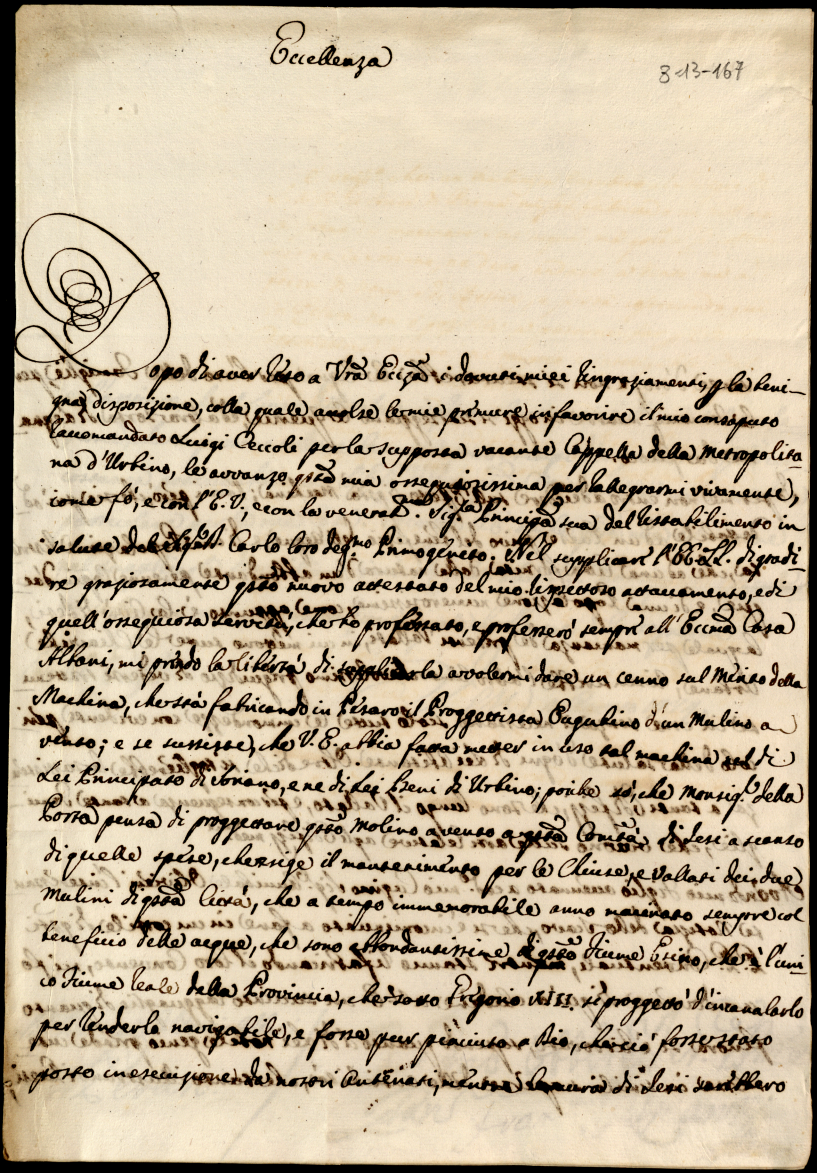 Eccellenza
3-13-167
Dopo di aver reso a Vr̃a Eccz̃a i dovuti miei ringraziamenti, p la beni-
gna disposizione, colla quale accolse le mie premure in favorire il mio consaputo
raccomandato Luigi Ceccoli per la supposta vacante Cappella della Metropolita-
na d'Urbino, le avvanzo qsta mia ossequiosissima per rallegrarmi vivamente,
come fò, e con l'E. V., e con la venerat.ma Sig.ra Principsa sua del ristabilimento in
salute del Sig.r D. Carlo loro deg.mo Primogenito. Nel supplicare l'EE. LL. di gradi-
re graziosamente qsto nuovo attestato del mio rispettoso attaccamento, e di
quell'ossequiosa servitù, che hò professato, e professerò sempre all'Eccma Casa
Albani, mi prendo la libertà di supplicarla a volermi dare un cenno sul Merito della
Machina, che stà fabricando in Pesaro il Proggettista Eugubino d'un Mulino a
vento; e se sussiste, che V. E. abbia fatta metter in uso tal machina nel di
Lei Principato di Soriano, e ne di Lei Beni di Urbino; poiche sò, che Monsig.r della
Porta pensa di proggettare qsto Molino a vento a qsta Comtà di Jesi a scanso
di quelle spese, che esige il mantenimento per le Chiuse, e Vallati dei due
Mulini di qsta Città, che a tempo immemorabile anno macinato sempre col
beneficio delle acque, che sono abbondantissime di qsto Fiume Esino, che è l'uni-
co Fiume reale della Provincia, che sotto Gregorio XIII. si proggettò d'incanalarlo
per renderlo navigabile, e fosse pur piaciuto a Dio, che ciò fosse stato
posto in esecuzione da nostri Antenati, mentre le mura di Jesi sarebbero